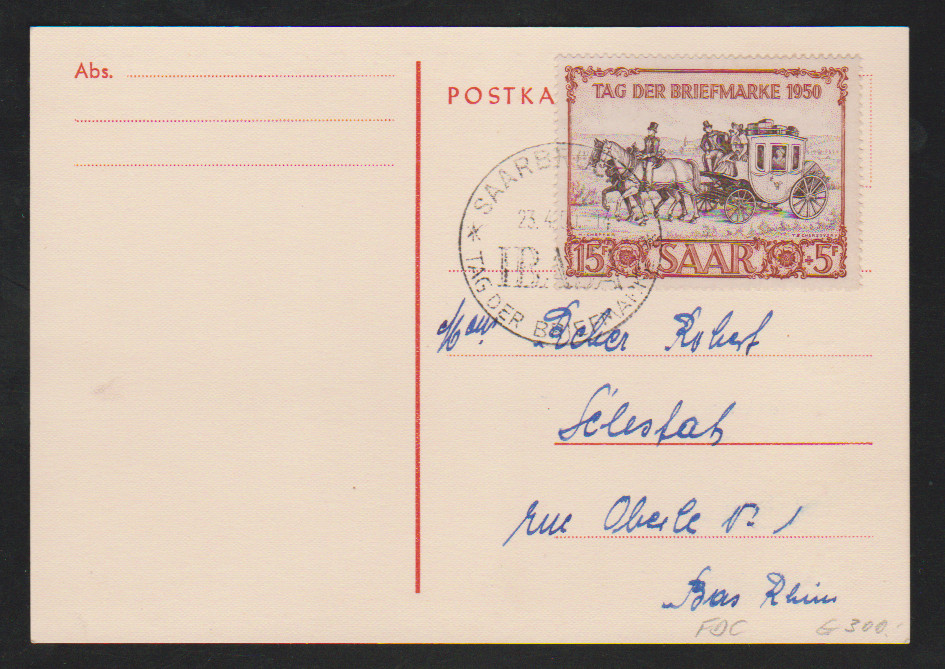 Abs.
POSTKA
TAG DER BRIEFMARKE 1950
15F SAAR +5F
SAARBRÜC
23.4.
IBASA
TAG DER BRIEFMARKE
Robert
Sélestat
rue Oberlé No 1
Bas Rhin
FDC 300.-